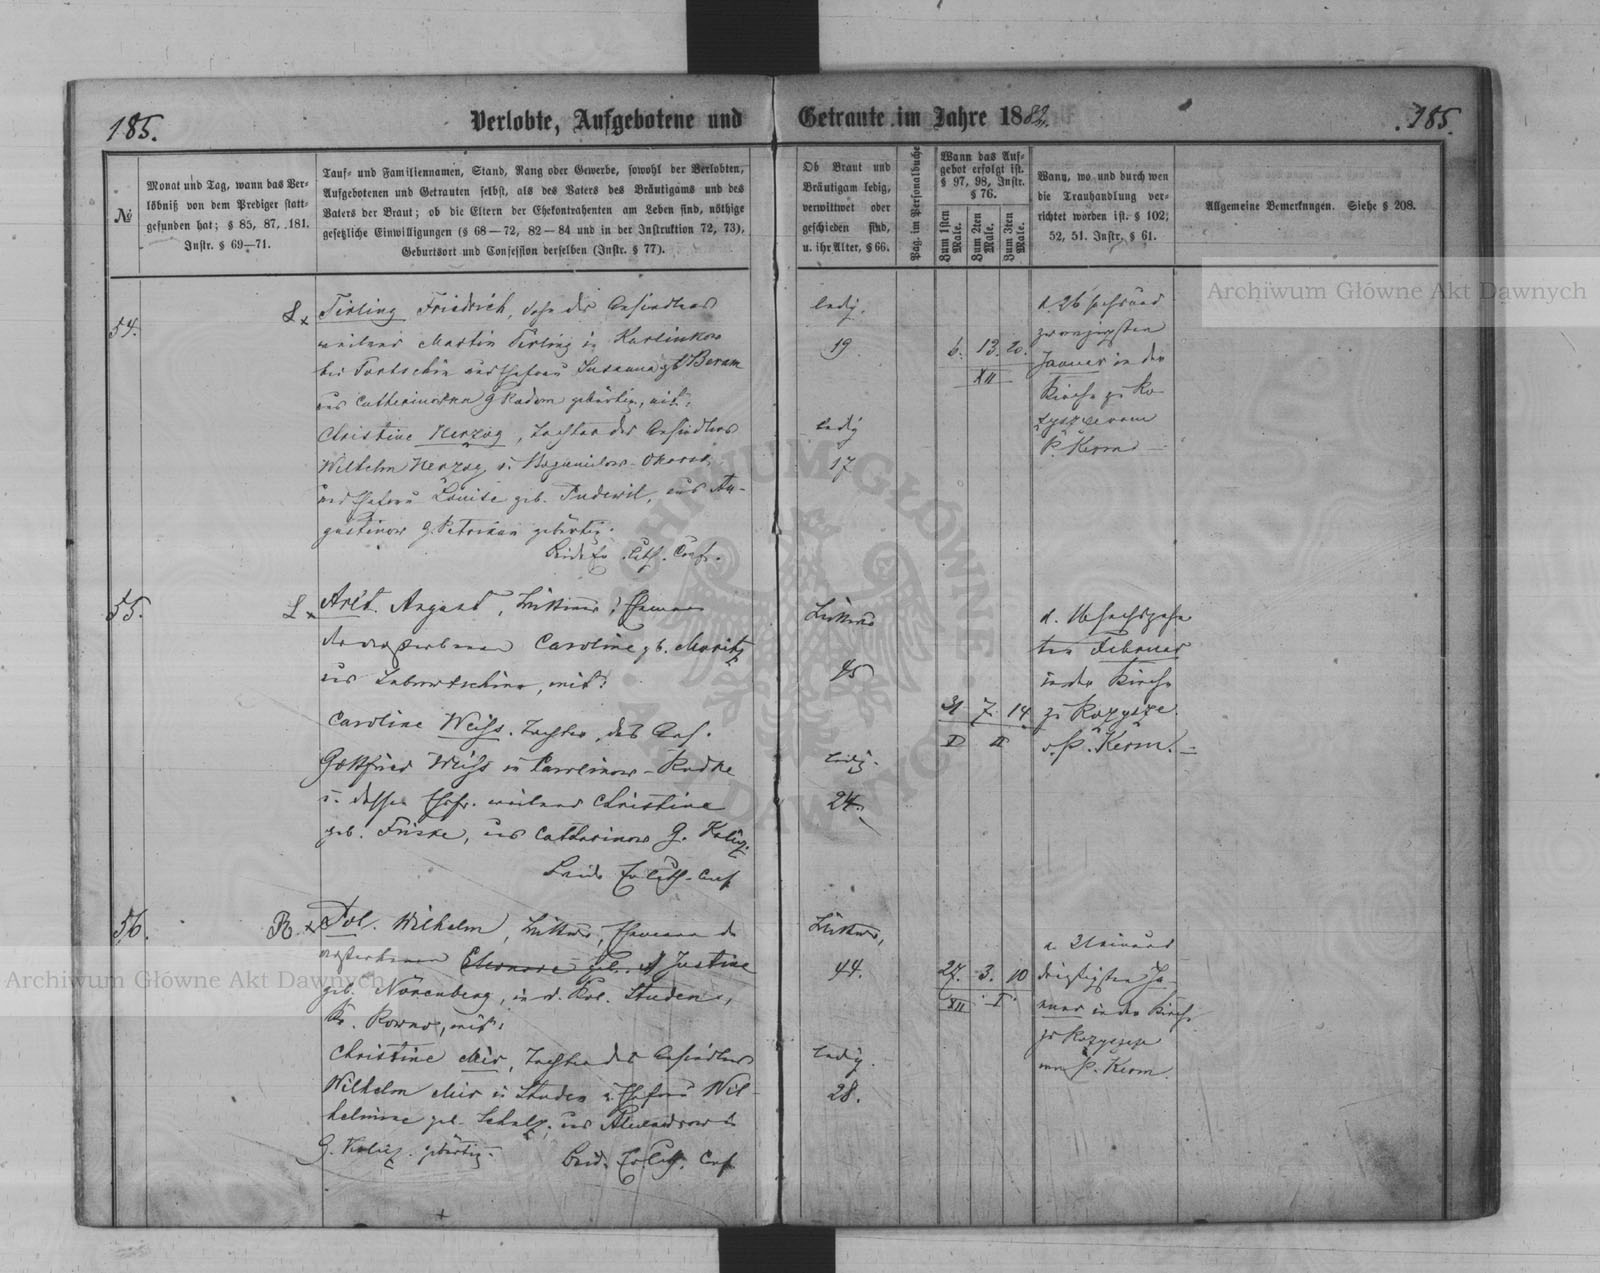 185.
Verlobte, Aufgebotene und
Getraute im Jahre 1882.
185.
№
Monat und Tag, wann das Ver-
löbniß von dem Prediger statt-
gefunden hat; § 85, 87, 181.
Instr. § 69—71.
Tauf- und Familiennamen, Stand, Rang oder Gewerbe, sowohl der Verlobten,
Aufgebotenen und Getrauten selbst, als des Vaters des Bräutigams und des
Vaters der Braut; ob die Eltern der Ehekontrahenten am Leben sind, nöthige
gesetzliche Einwilligungen (§ 68—72, 82—84 und in der Instruktion 72, 73),
Geburtsort und Confession derselben (Instr. § 77).
Ob Braut und
Bräutigam ledig,
verwittwet oder
geschieden sind,
u. ihr Alter, § 66.
Pag. im Personalbuche
Wann das Auf-
gebot erfolgt ist.
§ 97, 98, Instr.
§ 76.
Zum 1sten Male.
Zum 2ten Male.
Zum 3ten Male.
Wann, wo und durch wen
die Trauhandlung ver-
richtet worden ist. § 102;
52, 51. Instr. § 61.
Allgemeine Bemerkungen. Siehe § 208.
54.
L x
Tirling Friedrich, Sohn des Ansiedlers
weiland Martin Tirling in Karlinkow
bei Tortschin und Ehefrau Susanna gb
aus Catherinowka G Radom gebürtig, mit:
Christine Herzog, Tochter des Ansiedlers
Wilhelm Herzog in
und Ehefrau Louise geb. aus Au-
gustinow G. Petrikau gebürtig.
Beide Ev. Luth. Conf.
ledig.
19
ledig
17
6. 13. 20.
XII
d. 26 sechsund
zwanzigsten
Januar in der
Kirche zu Ro-
zyszcze vom
P. Kerm
55.
L x
Arlt. August, Wittwer, Ehemann
der verstorbenen Caroline gb. Moritz
aus mit:
Caroline Weiss. Tochter des Ans.
Gottfried Weiss in Carolinow-Rudke
u. dessen Ehefr. weiland Christine
geb. Friske, aus Catharinow G. Kalisz.
Beide Ev. Luth. Conf
Wittwer
45
ledig.
24.
31 7. 14
I II
d. 16 sechszehn
ten Februar
in der Kirche
zu Rozyszcze
v. P. Kerm.
56.
R. x
Wilhelm, Wittwer, Ehemann der
verstorbenen Eleonore geb. Justine
geb. Nörenberg, in d. Kol. Studen,
Kr. Rowno, mit:
Christine Mir, Tochter des Ansiedlers
Wilhelm Mir in Studen u. Ehefrau Wil-
helmine geb. Schulz, aus Alexandrow
G. Kalisz. gebürtig.
Beid. Ev. Luth. Conf
Wittwer,
44.
ledig.
28.
27. 3. 10
XII I
d. 31 einund
dreißigsten Ja-
nuar in der Kirche
zu Rozyszcze
vom P. Kerm.
Archiwum Główne Akt Dawnych
Archiwum Główne Akt Dawnych
ARCHIWUM GŁÓWNE AKT DAWNYCH